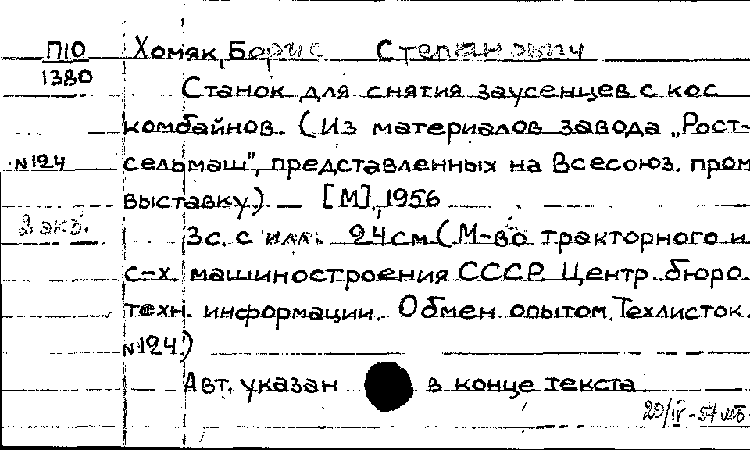 П10 Хомяк, Борис Степанович
1380 Станок для снятия заусенцев с кос
комбайнов. (Из материалов завода „Рост-
№124 сельмаш", представленных на Всесоюз. пром
выставку.) — [М], 1956
2 экз. 3с. с илл. 24см (М-во тракторного и
с-х. машиностроения СССР. Центр. бюро
техн. информации. Обмен опытом. Техлисток.
№124.)
Авт. указан в конце текста
20/IV-57